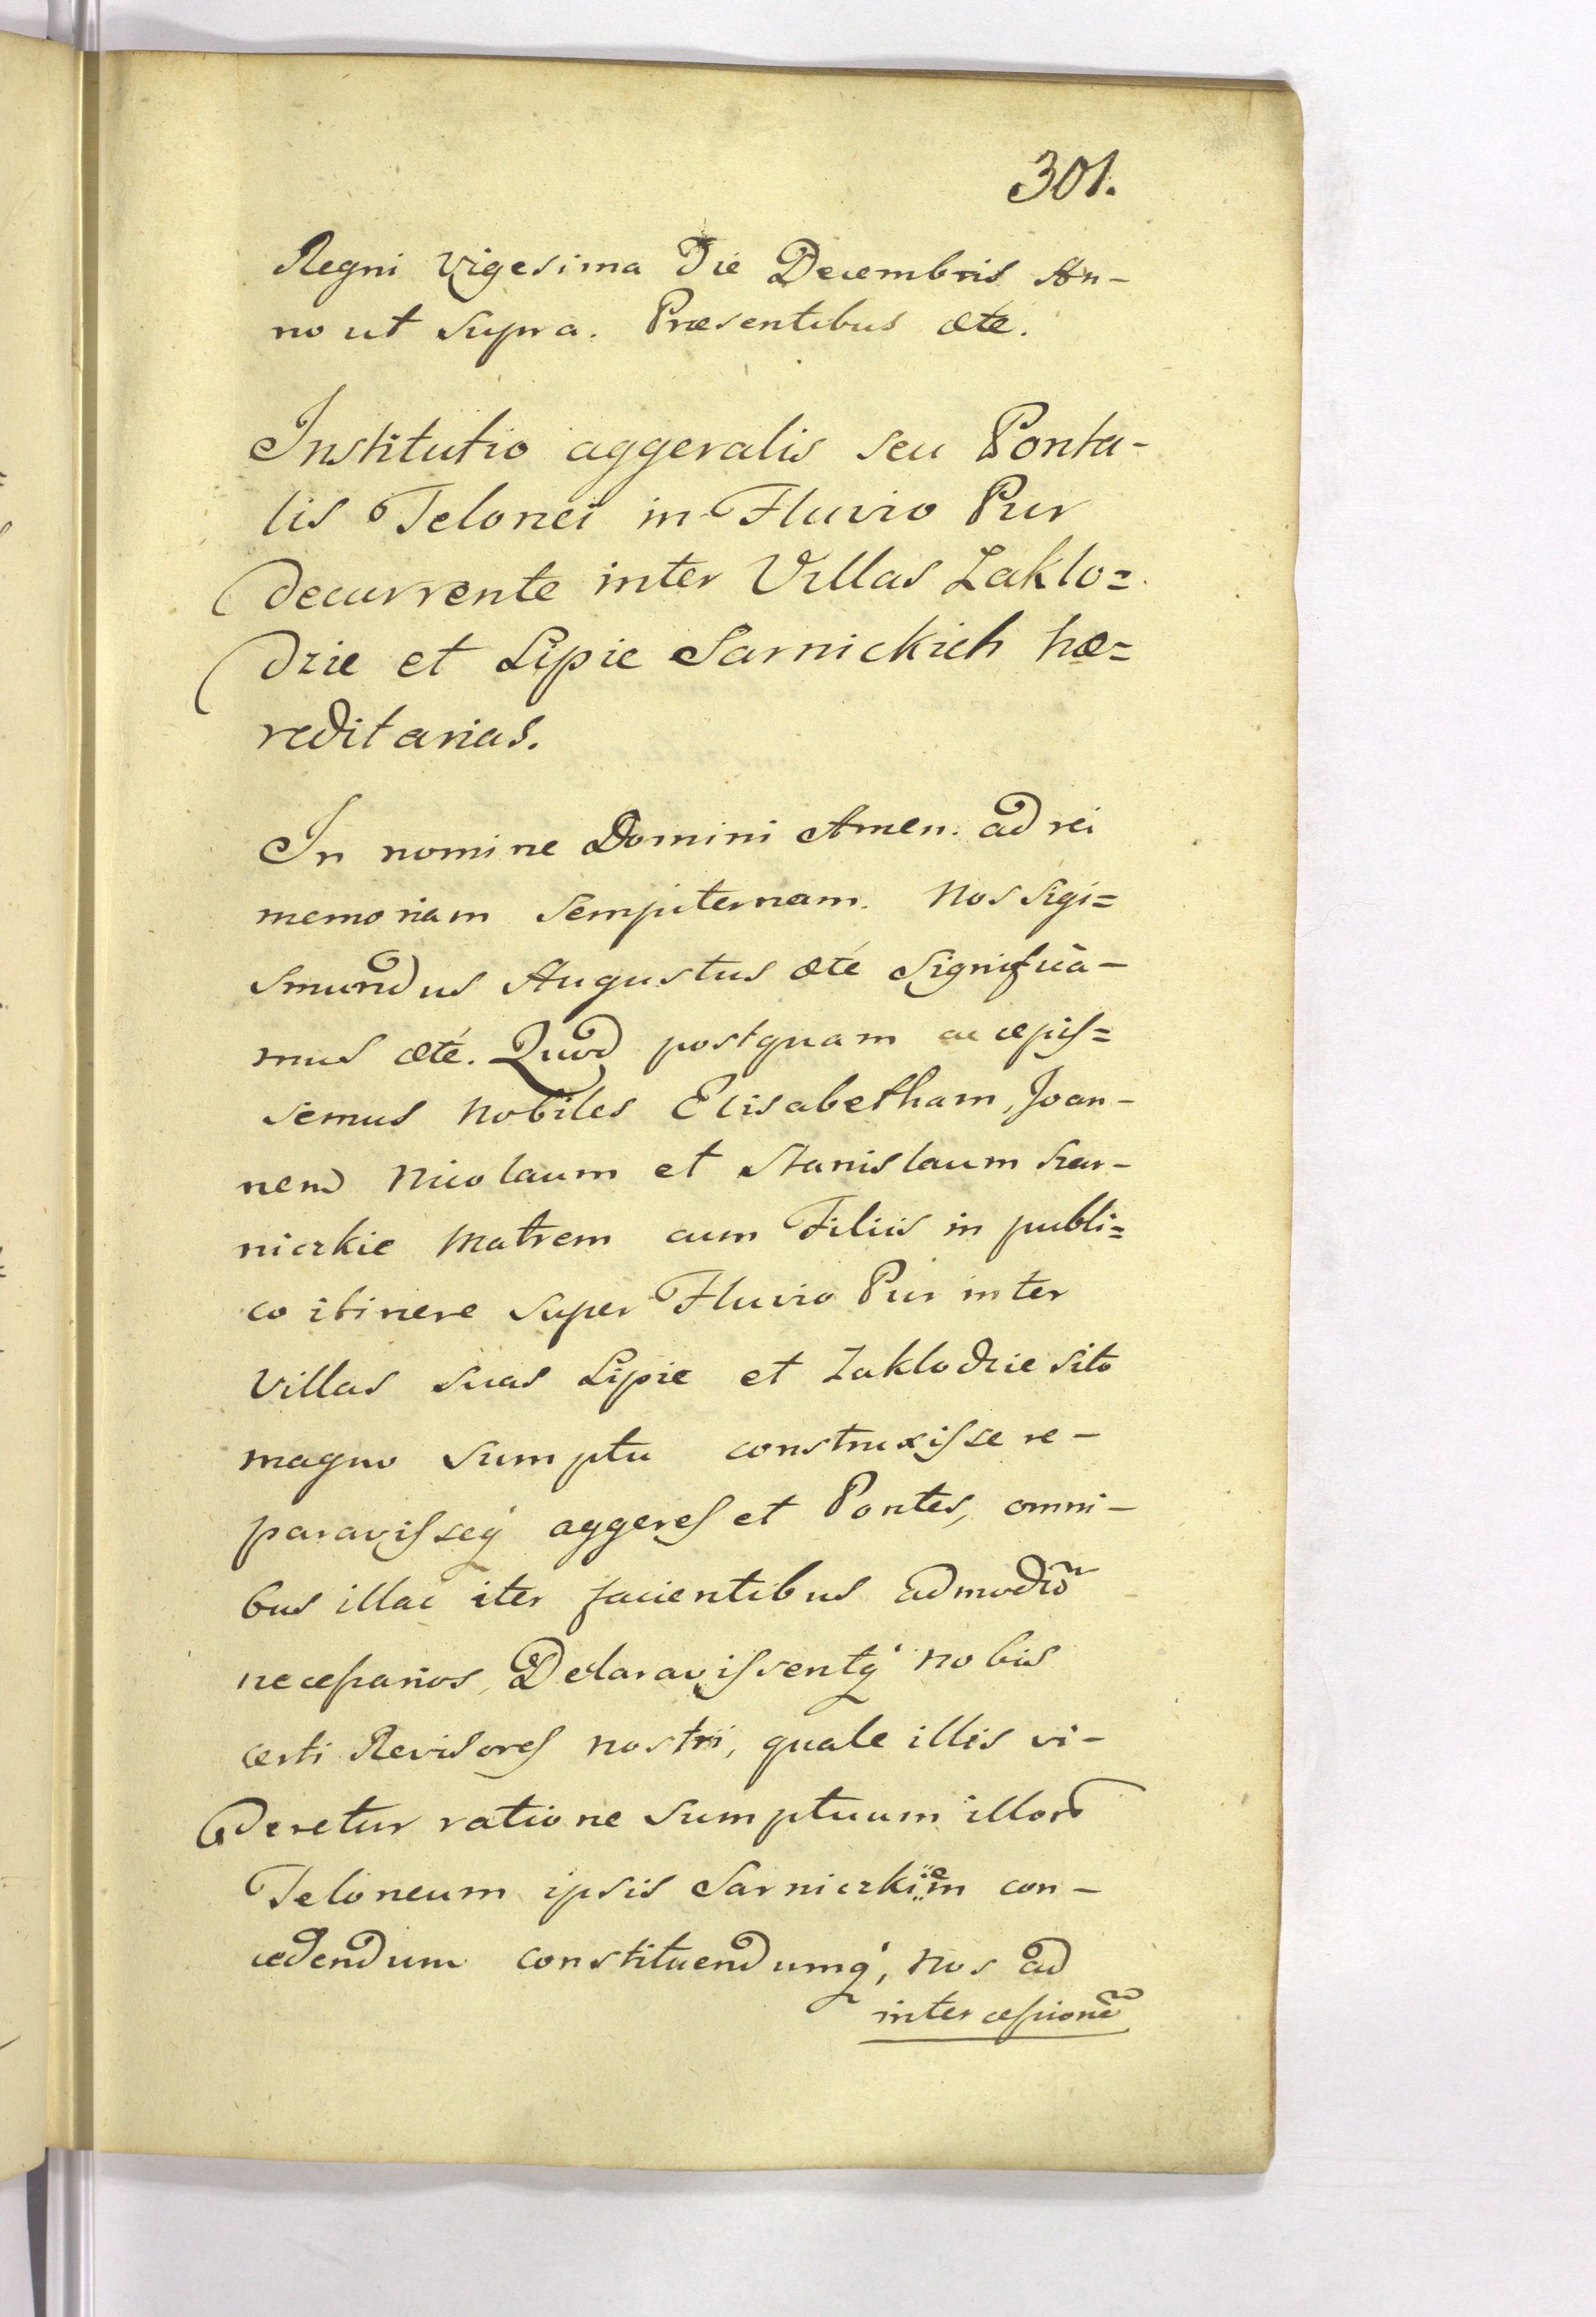 301.
Regni Vigesima Die Decembris An-
no ut supra. Præsentibus ætc.
Institutio aggeralis seu Ponta-
lis Telonei in Fluvio Pur
decurrente inter Villas Zaklo=
dzie et Lipie Sarnickich hæ=
reditarias.
In nomine Domini Amen. ad rei
memoriam sempiternam. Nos Sigi=
smundus Augustus ætc Significa-
mus ætc. Quod postquam accepis=
semus Nobiles Elisabetham, Joan-
nem Nicolaum et Stanislaum Szar-
niczkie Matrem cum Filiis in publi=
co itinere super Fluvio Pur inter
Villas suas Lipie et Zaklodzie sito
magno sumptu construxisse re-
paravisseq́ aggeres et Pontes, omni-
bus illac iter facientibus admodũ
necessarios, Declaravissentq́ nobis
certi Revisores nostri, quale illis vi-
deretur ratione sumptuum illorũ
Teloneum ipsis Sarniczkiem con-
cedendum constituendumq́, nos ad
intercessionẽ